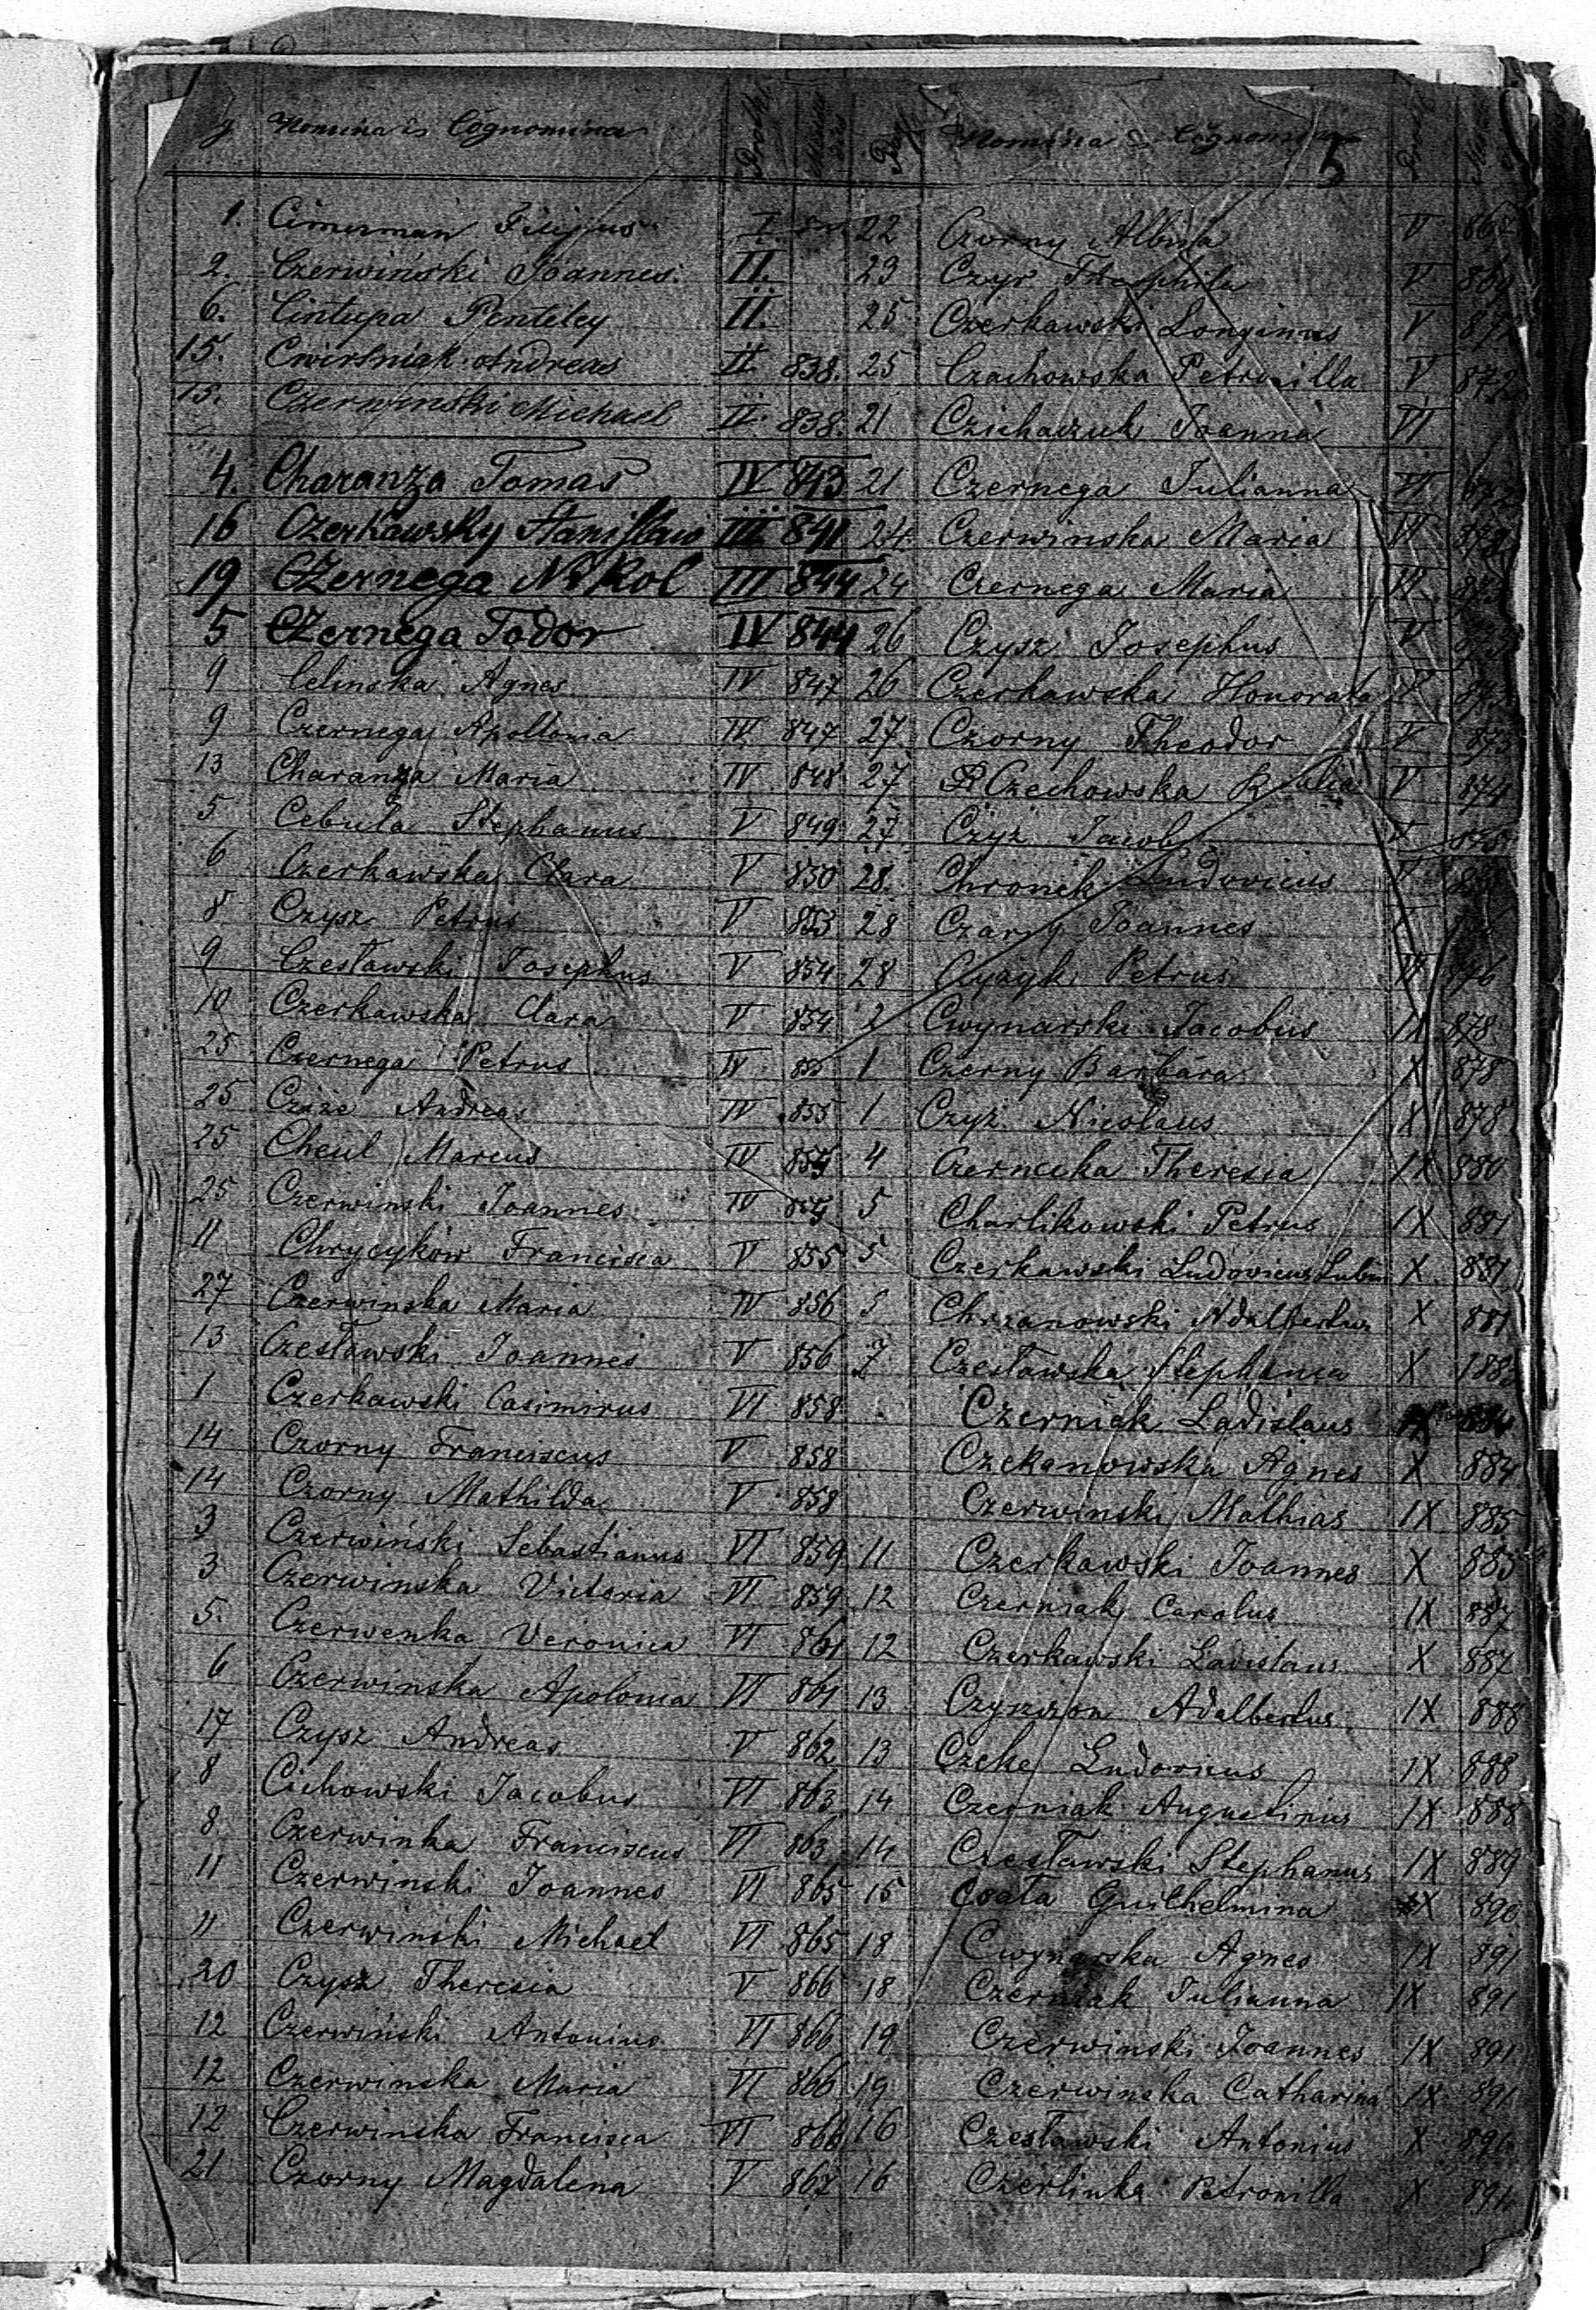 Nomina & Cognomina
1. Cimerman Filipus I.
2. Czerwiński Joannes II.
6. Cintupa Penteley II.
15. Cwirlniak Andreas II. 838.
15. Czerwinski Michael II. 838.
4. Charanza Tomas IV 843
16 Czerkawsky Stanislaw III 841
19 Czernega Nikol III 844
5 Czernega Todor IV 844
9 Celinska Agnes IV 847
9 Czernega Apollonia IV 847
13 Charanza Maria IV 848
5 Cebula Stephanus V 849
6 Czerkawska Clara V 850
8 Czysz Petrus V 853
9 Czesławski Josephus V 854
10 Czerkawska Clara V 854
25 Czernega Petrus IV 855
25 Czize Andreas IV 855
25 Cheul Marcus IV 855
25 Czerwinski Joannes IV 855
11 Chrycyków Francisca V 855
27 Czerwinska Maria IV 856
13 Czesławski Joannes V 856
1 Czerkawski Casimirus VI 858
14 Czorny Franciscus V 858
14 Czorny Mathilda V 858
3 Czerwiński Sebastianus VI 859
3 Czerwinska Victoria VI 859
5. Czerwenka Veronica VI 861
6 Czerwinska Apolonia VI 861
17 Czysz Andreas V 862
8 Cichowski Jacobus VI 863
8 Czerwinka Franciscus VI 863
11 Czerwinski Joannes VI 865
11 Czerwiński Michael VI 865
20 Czysz Theresia V 866
12 Czerwiński Antonius VI 866
12 Czerwinska Maria VI 866
12 Czerwinska Francisca VI 866
21 Czorny Magdalena V 867
Nomina & Cognomina
5
22 Czorny Albina V 867
23 Czyż Theophila V 869
25 Czerkawski Longinus V 872
25 Czachowska Petronilla V 872
21 Czichaczuk Joanna VI
21 Czernega Julianna VI 872
24 Czerwinska Maria VI 873
24 Czernega Maria VI 873
26 Czysz Josephus V 873
26 Czerkawska Honorata V 873
27 Czorny Theodor V 875
27 Czechowska Rosalia V 874
27 Czyż Jacob V 875
28 Chronek Ludovicus V
28 Czarny Joannes V
28 Czyżyk Petrus V 876
2 Cwynarski Jacobus IX 878
1 Czerny Barbara X 878
1 Czyż Nicolaus X 878
4 Czernecka Theresia IX 880
5 Charlikowski Petrus IX 881
5 Czerkawski Ludovicus X 881
5 Chrzanowski Adalbertus X 881
7 Czesławska Stephania X 1883
Czerniak Ladislaus IX 884
Czekanowska Agnes X 884
Czerwinski Mathias IX 885
11 Czerkawski Joannes X 885
12 Czerniak Carolus IX 887
12 Czerkawski Ladislaus X 887
13 Czyszczon Adalbertus IX 888
13 Czeke Ludovicus IX 888
14 Czerniak Augustinus IX 888
14 Czesławski Stephanus IX 889
15 Coata Guilhelmina X 890
18 Cwynarska Agnes IX 891
18 Czerniak Julianna IX 891
19 Czerwinski Joannes IX 891
19 Czerwinska Catharina IX 891
16 Czesławski Antonius X 891
16 Czerlinka Petronilla X 891